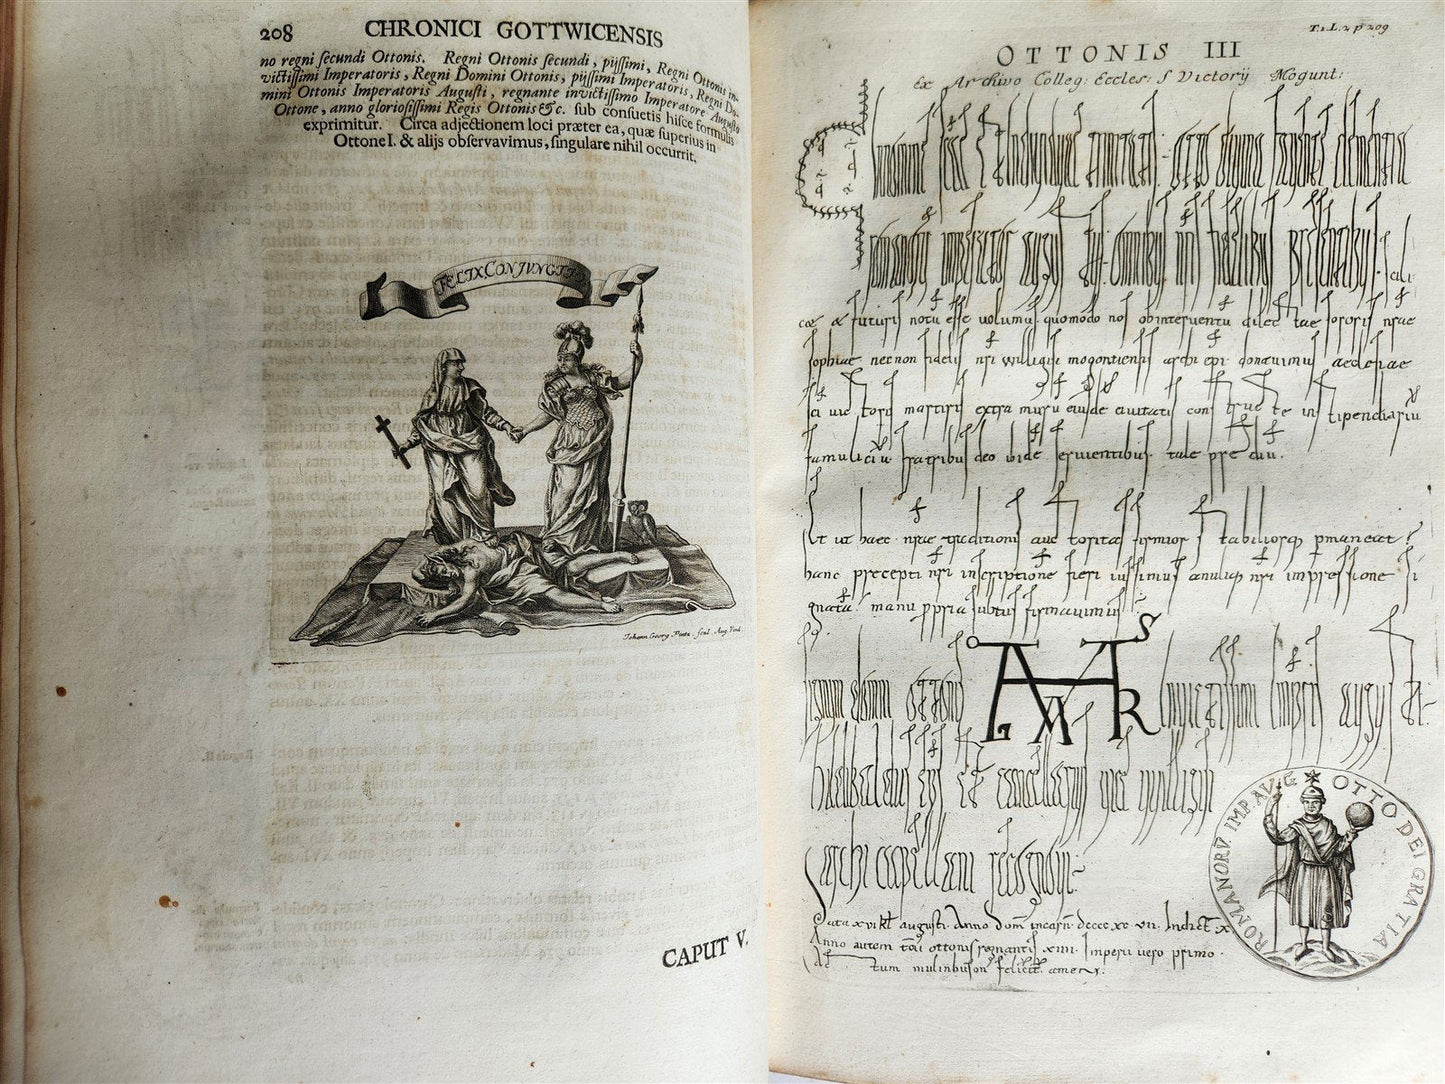 208 CHRONICI GOTTWICENSIS
no regni secundi Ottonis. Regni Ottonis secundi, piissimi, Regni Ottonis in-
victissimi Imperatoris, Regni Domini Ottonis, piissimi Imperatoris, Regni Do-
mini Ottonis Imperatoris Augusti, regnante invictissimo Imperatore Augusto
Ottone, anno gloriosissimi Regis Ottonis &c. sub consuetis hisce formulis
exprimitur. Circa adjectionem loci præter ea, quæ superius in
Ottone I. & alijs observavimus, singulare nihil occurrit.
FELIX CONJUNCTIO
Johann Georg Pintz sculp. Aug. Vind.
CAPUT V.
T.1.L.2 p 209
OTTONIS III
Ex Archivo Colleg: Eccles: S Victorij Mogunt:
otto divina favente clementia
romanorum imperator
cae & futuris notu esse volumus quomodo nos ob interventu dilec tae sororis nrae
sophiae necnon fidelis nri willigisi mogontiensis archi epi donavimus
martiris extra muru eiusde civitatis con struc te in stipendiariu
famuliciu fratribus deo ibide servientibus tale
Et ut haec nrae traditionis auc toritas firmior s tabiliorq permaneat
hanc precepti nri inscriptione fieri iussimus anuliq nri impressione si
gnata manu ppria subtus firmavimus
Signum domni ottonis invictissimi
Hildibaldus eps et cancellarius vice vuilligisi
archi capellani recognovi
Data xvi kl augusti Anno dom incarn dcccc xc vii Indict x
Anno autem tcii ottonis regnantis xiiii Imperii vero primo
Ac tum mulinhuson felicit amen
OTTO DEI GRATIA ROMANORV IMP AVG